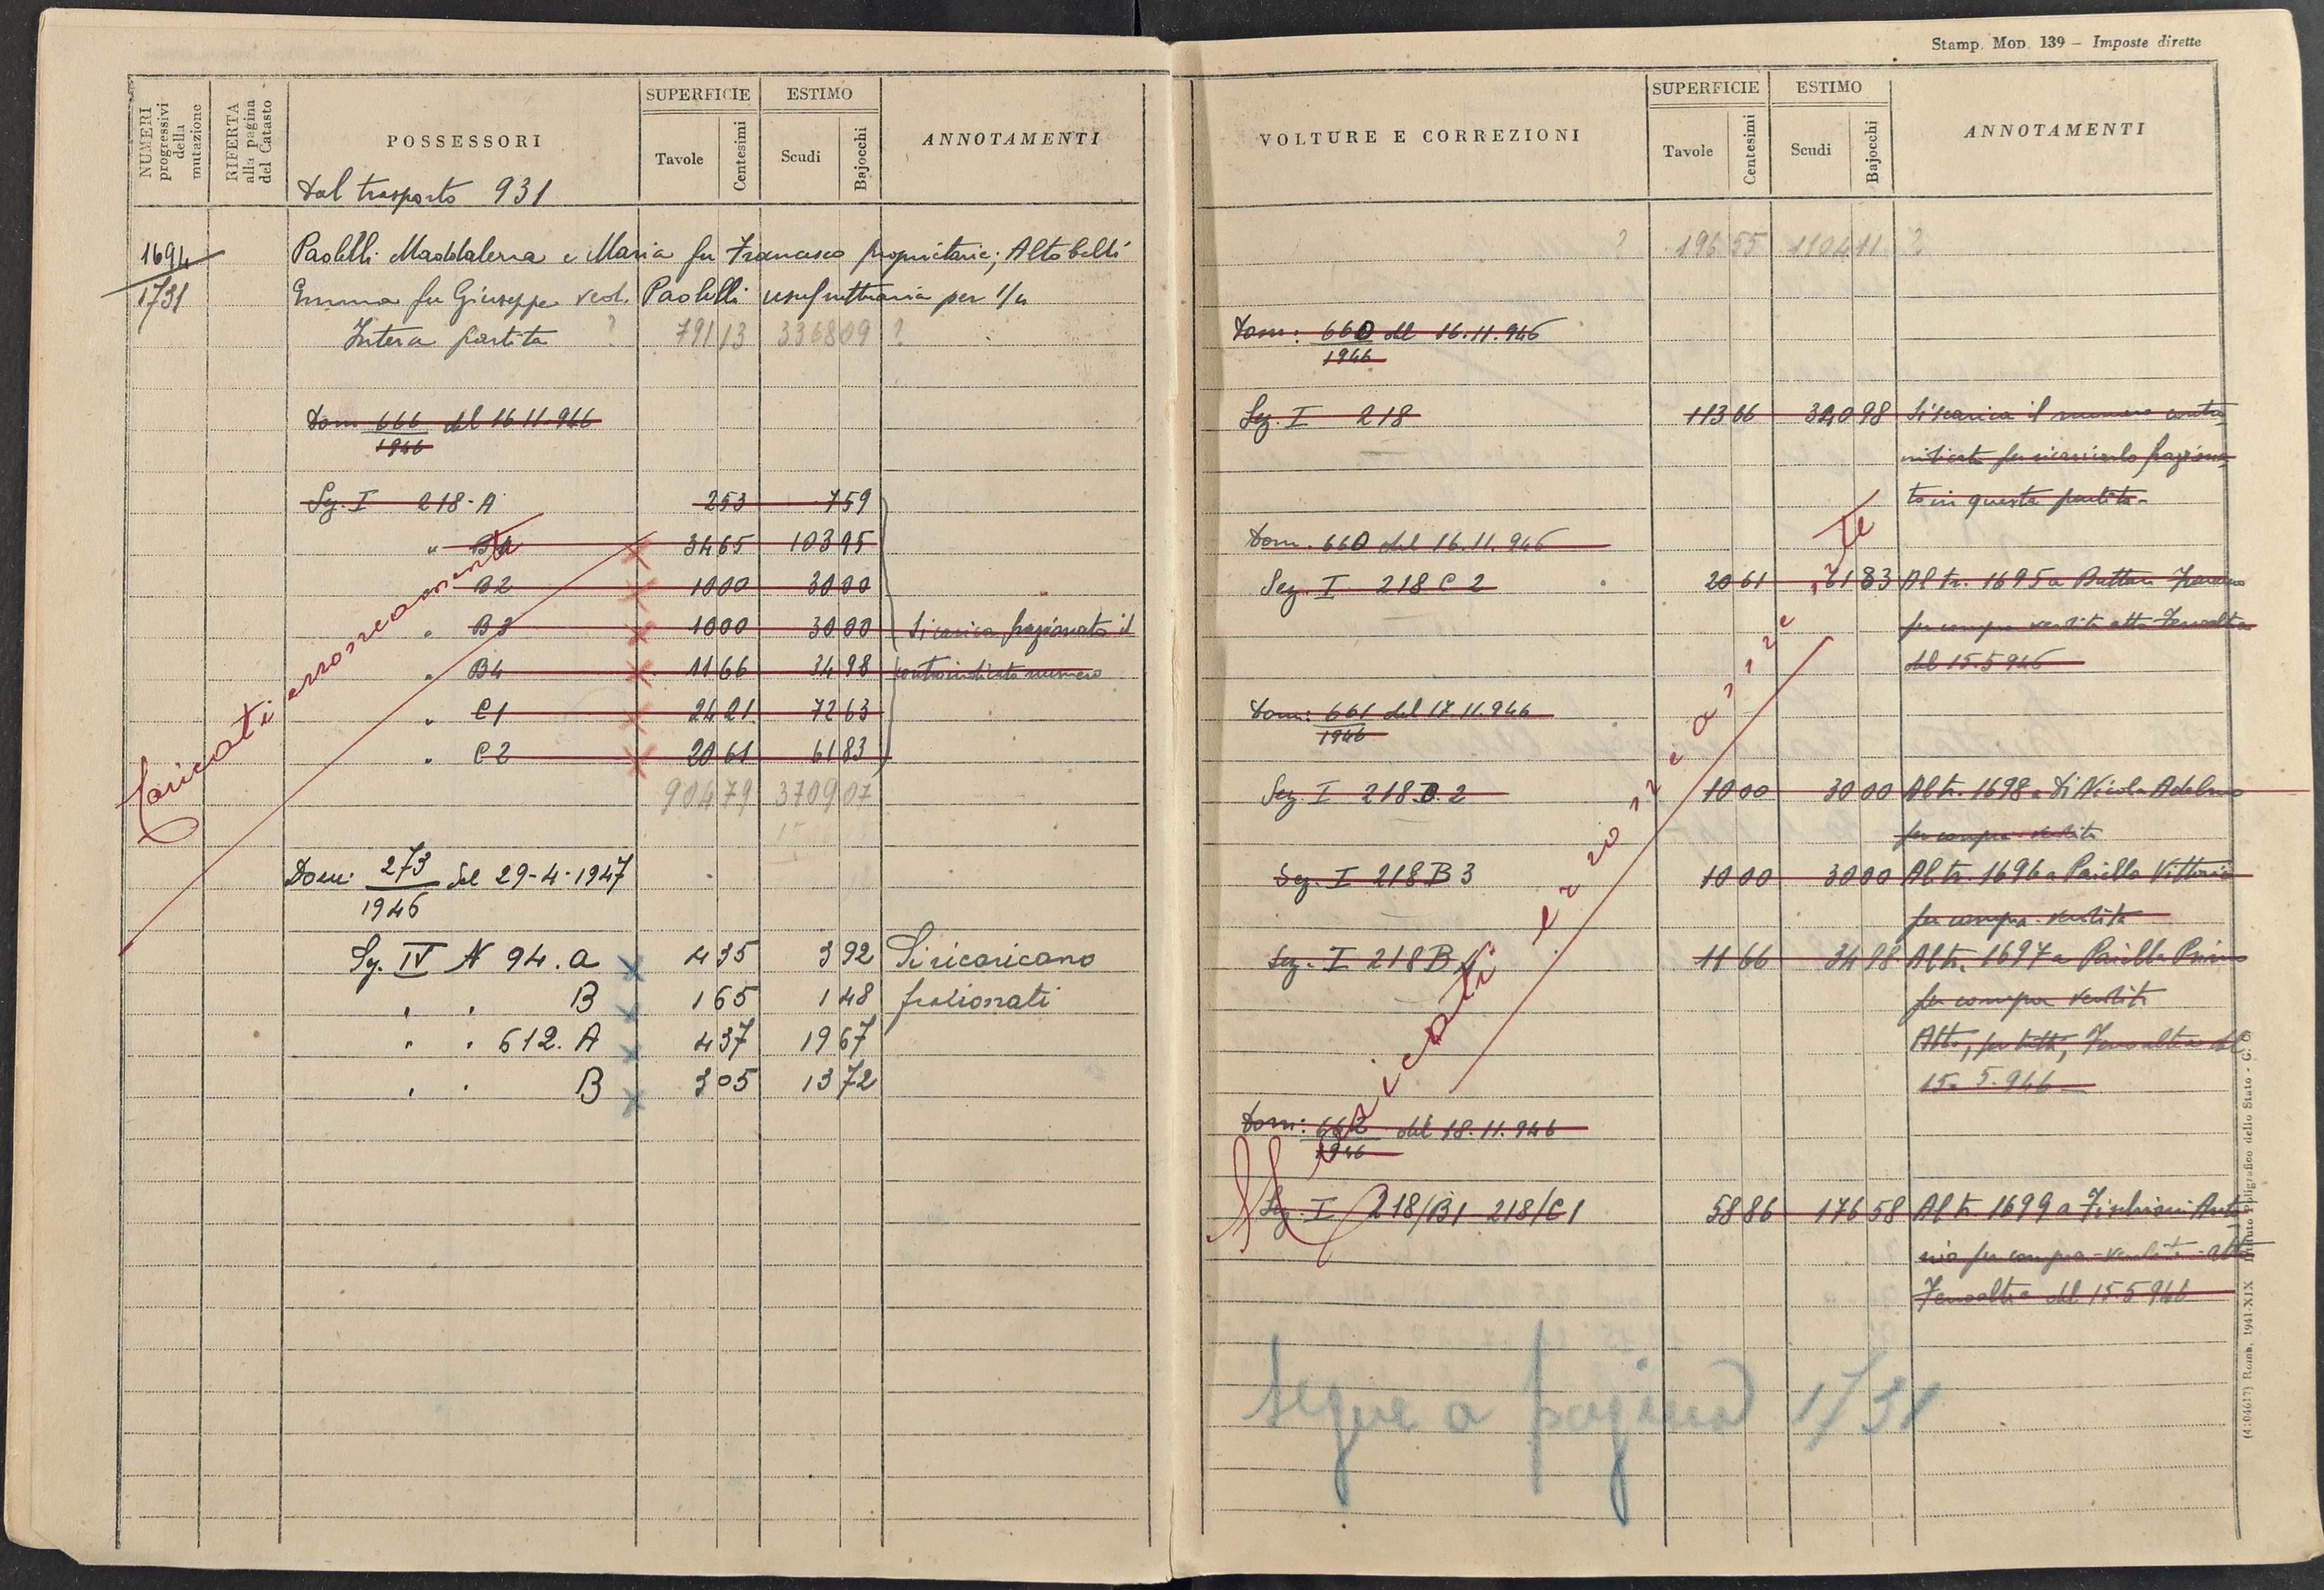 NUMERI progressivi della mutazione
RIFERTA alla pagina del Catasto
POSSESSORI
SUPERFICIE
Tavole
Centesimi
ESTIMO
Scudi
Bajocchi
ANNOTAMENTI
Dal trasporto 931
1694
1731
Paolelli Maddalena e Maria fu Francesco proprietarie; Altobelli
Emma fu Giuseppe ved. Paolelli usufruttuaria per 1/4
Intera partita ? 791 13 3368 09 ?
Dom 666 del 16 11.946
1946
Sez. I 218-A 2 53 7 59
" B1 34 65 103 95
B2 10 00 30 00
" B3 10 00 30 00 Si carica frazionato il
" B4 11 66 34 98 controindicato numero
" C1 24 21 72 63
" C2 20 61 61 83
904 79 3709 07
Caricati erroneamente
Dom: 273 del 29-4-1947
1946
Sez. IV N 94. a 4 35 3 92 Si ricaricano
" " B 1 65 1 48 frazionati
" " 612. A 4 37 19 67
" " B 3 05 13 72
Stamp. Mod. 139 – Imposte dirette
VOLTURE E CORREZIONI
SUPERFICIE
Tavole
Centesimi
ESTIMO
Scudi
Bajocchi
ANNOTAMENTI
? 196 55 1104 11 ?
Dom: 660 del 16.11.946
1946
Sez. I 218 113 66 340 98 Si scarica il numero contro
indicato per ricaricarlo fraziona
to in questa partita-
Dom. 660 del 16.11.946
Sez. I 218 C 2 20 61 61 83 Al tr. 1695 a Buttari
per compra vendita atto
del 15.5 946
Dom: 661 del 17.11.946
1946
Sez I 218 B. 2 10 00 30 00 Al tr. 1698 a Di Nicola Adelmo
per compra-vendita
Sez. I 218 B 3 10 00 30 00 Al tr. 1696 a Paiella Vittorio
per compra-vendita
Sez. I 218 B 4 11 66 34 98 Al tr. 1697 a Paiella Primo
per compra vendita
Atto, per tutti, del
15. 5. 946
Dom: 662 del 18.11.946
1946
Sez. I 218/B1 218/C1 58 86 176 58 Al tr. 1699 a Anto
nio per compra-vendita-atto
del 15.5 946
Scaricati erroneamente
Segue a pagina 1731
(4104617) Roma, 1941-XIX Istituto Poligrafico dello Stato - G. C.